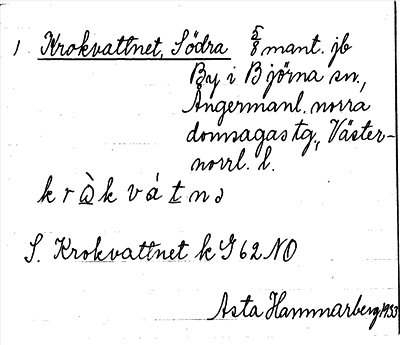 1 Krokvattnet, Södra 5/8 mant. jb
By i Björna sn.,
Ångermanl. norra
domsagas tg., Väster-
norrl. l.
k r ɔ̀ k v á t n ə
S. Krokvattnet k G 62 NO
Asta Hammarberg 1933